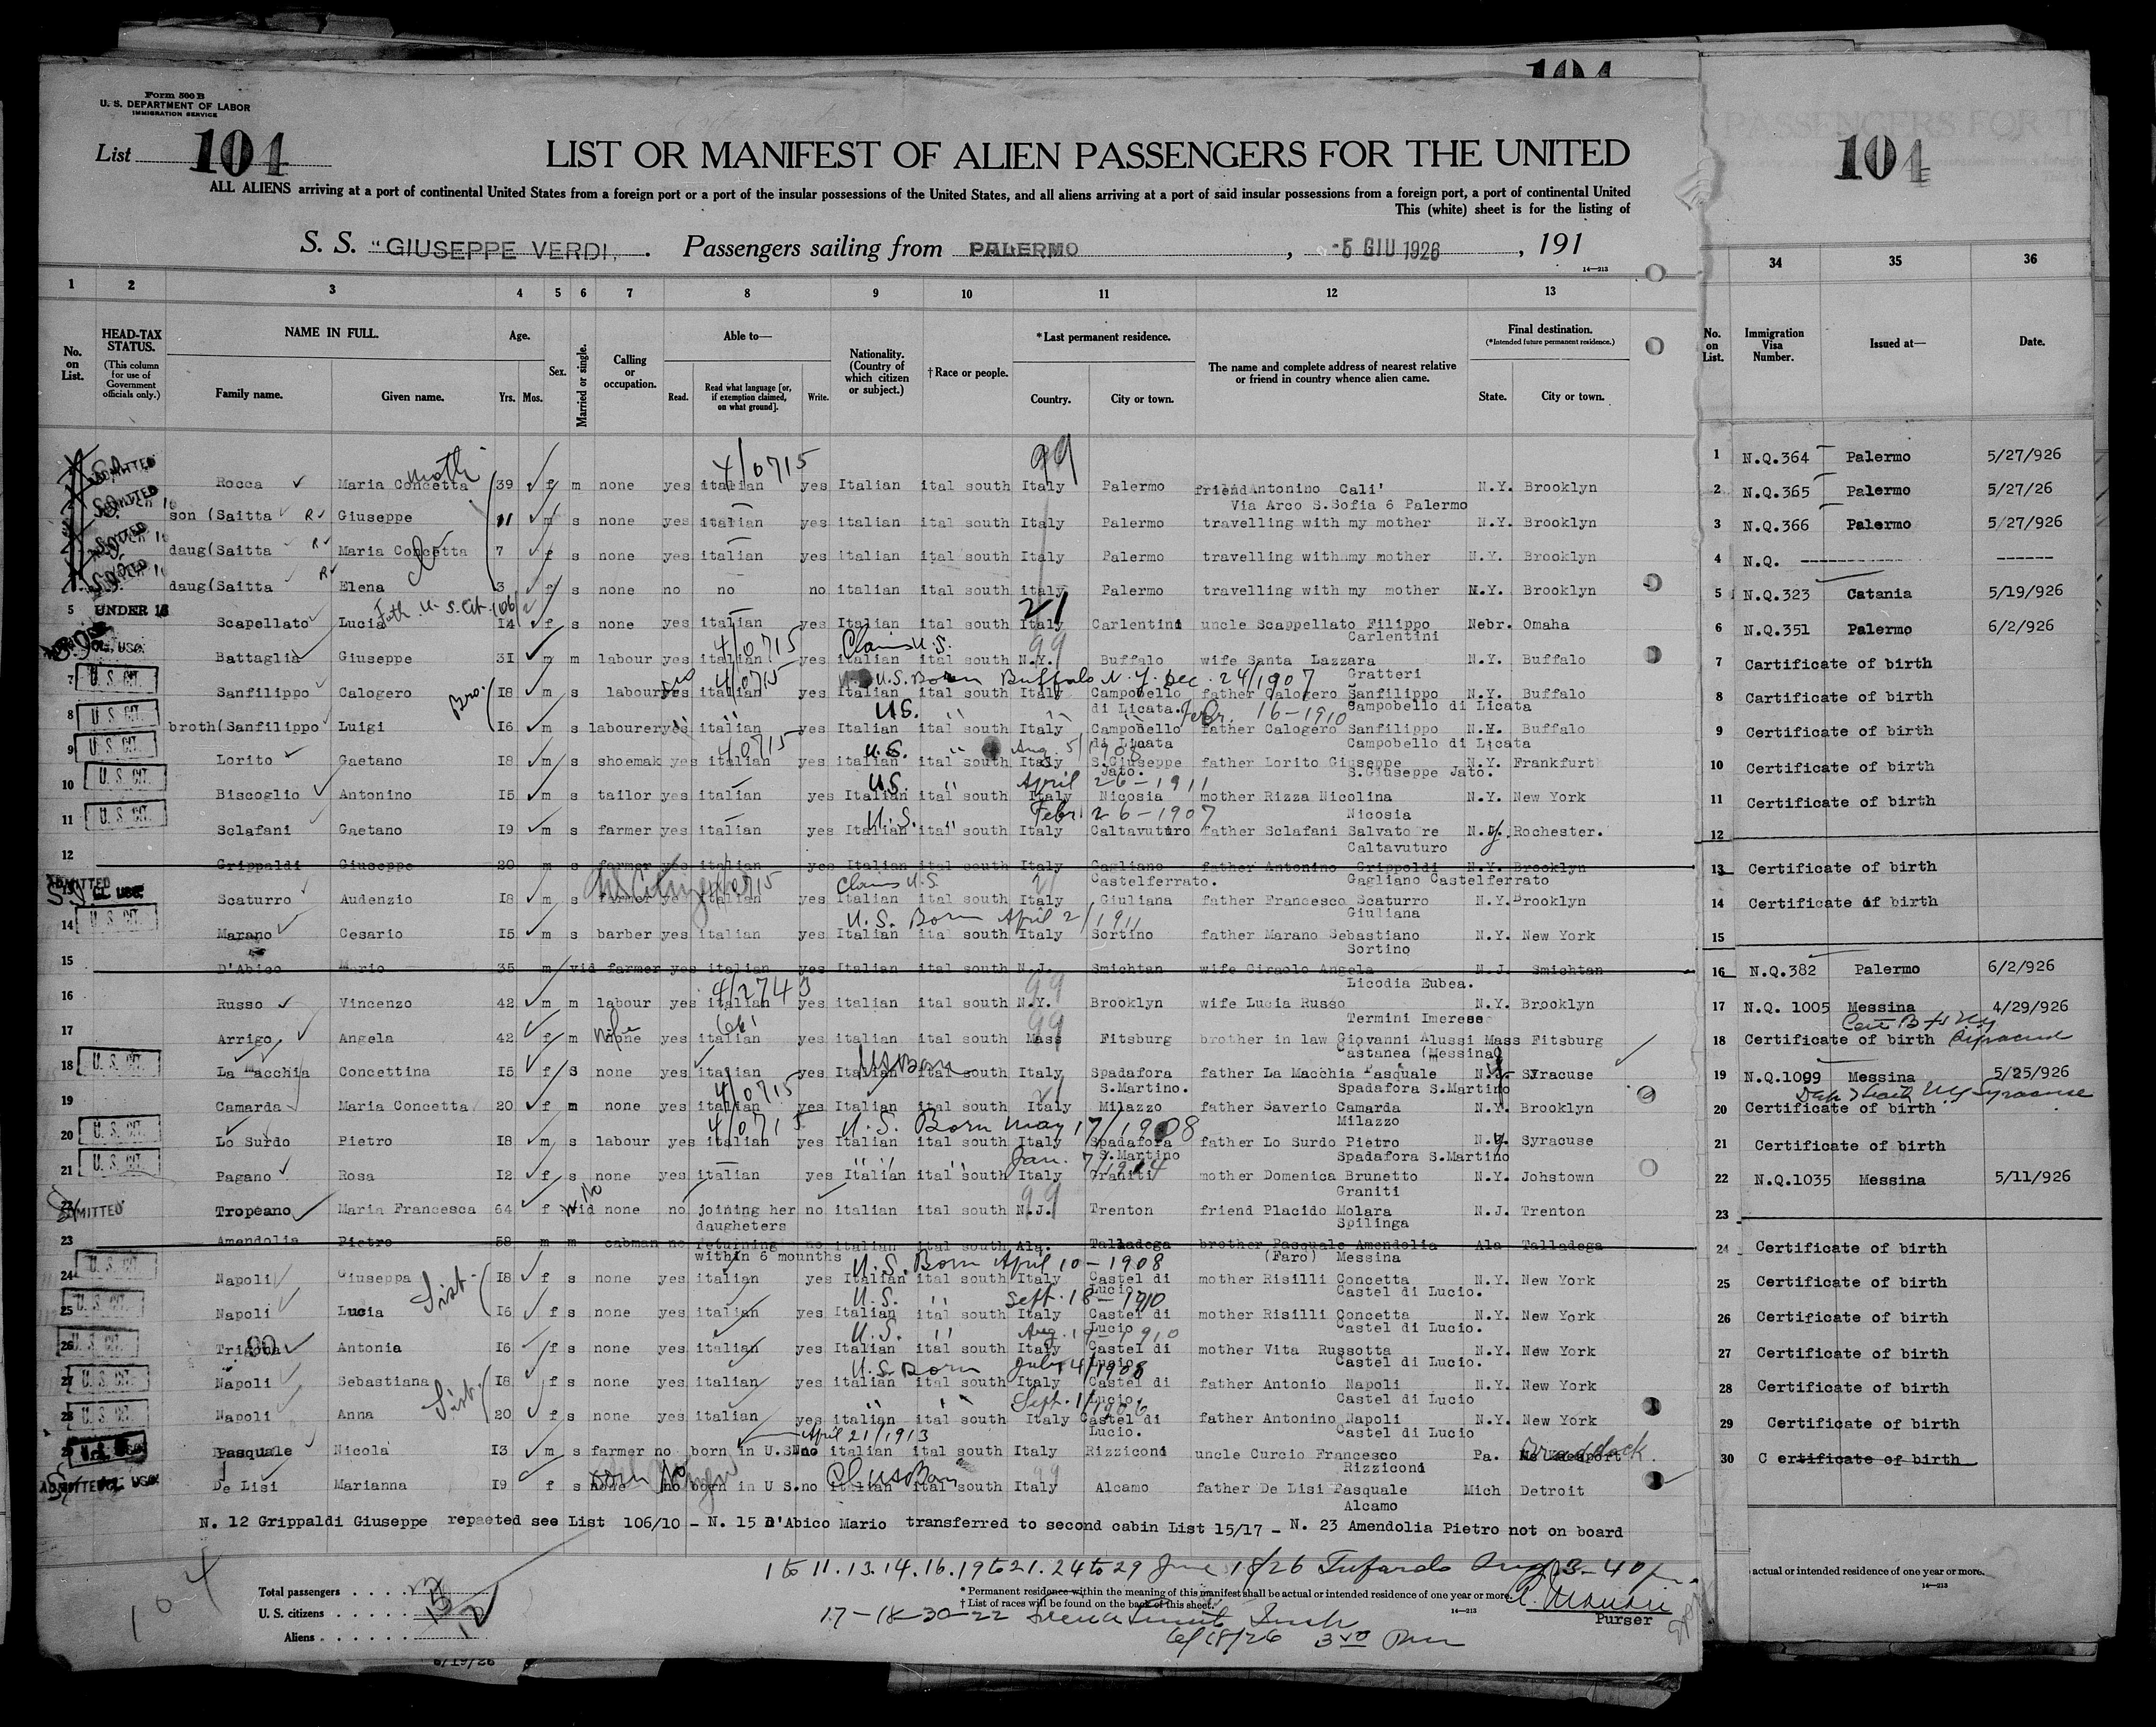 104
Form 500 B
U. S. DEPARTMENT OF LABOR
IMMIGRATION SERVICE
List 104
104
LIST OR MANIFEST OF ALIEN PASSENGERS FOR THE UNITED
ALL ALIENS arriving at a port of continental United States from a foreign port or a port of the insular possessions of the United States, and all aliens arriving at a port of said insular possessions from a foreign port, a port of continental United
This (white) sheet is for the listing of
S. S. "GIUSEPPE VERDI, . Passengers sailing from PALERMO , -5 GIU 1926 , 191
14—213
1 2 3 4 5 6 7 8 9 10 11 12 13 34 35 36
No. on List. HEAD-TAX STATUS. (This column for use of Government officials only.) NAME IN FULL. Family name. Given name. Age. Yrs. Mos. Sex. Married or single. Calling or occupation. Able to— Read. Read what language [or, if exemption claimed, on what ground]. Write. Nationality. (Country of which citizen or subject.) † Race or people. * Last permanent residence. Country. City or town. The name and complete address of nearest relative or friend in country whence alien came. Final destination. (* Intended future permanent residence.) State. City or town.
No. on List. Immigration Visa Number. Issued at— Date.
4/0715 99
ADMITTED Rocca Maria Concetta 39 f m none yes italian yes Italian ital south Italy Palermo friend Antonino Cali' N.Y. Brooklyn
Via Arco S.Sofia 6 Palermo
son (Saitta Giuseppe 11 m s none yes italian yes italian ital south Italy Palermo travelling with my mother N.Y. Brooklyn
daug(Saitta Maria Concetta 7 f s none yes italian yes italian ital south Italy Palermo travelling with my mother N.Y. Brooklyn
daug(Saitta Elena 3 f s none no no no italian ital south italy Palermo travelling with my mother N.Y. Brooklyn
5 UNDER 16 Scapellato Lucia Fath. U. S. Cit. 14 f s none yes italian yes Italian ital south Italy Carlentini uncle Scappellato Filippo Nebr. Omaha
Carlentini
4/0715 Claims U.S. 99
Battaglia Giuseppe 31 m m labour yes italian yes italian ital south N.Y. Buffalo wife Santa Lazzara N.Y. Buffalo
Gratteri
4/0715 U.S. Born Buffalo N.Y. Dec. 24/1907
7 U. S. CIT. Sanfilippo Calogero 18 m s labour yes italian yes Italian ital south Italy Campobello di Licata. father Calogero Sanfilippo N.Y. Buffalo
Campobello di Licata
U.S. Febr. 16-1910
8 U. S. CIT. broth(Sanfilippo Luigi 16 m s labourer yes italian yes Italian ital south Italy Campobello di Licata father Calogero Sanfilippo N.Y. Buffalo
Campobello di Licata
40715 U.S. Aug. 5/1908
9 U. S. CIT. Lorito Gaetano 18 m s shoemak yes italian yes italian ital south Italy S.Giuseppe Jato. father Lorito Giuseppe N.Y. Frankfurt
S.Giuseppe Jato.
U.S. April 26-1911
10 U. S. CIT. Biscoglio Antonino 15 m s tailor yes italian yes Italian ital south Italy Nicosia mother Rizza Nicolina N.Y. New York
Nicosia
U.S. Febr 26-1907
11 U. S. CIT. Sclafani Gaetano 19 m s farmer yes italian yes Italian ital south Italy Caltavuturo father Sclafani Salvatore N.Y. Rochester.
Caltavuturo
12 Grippaldi Giuseppe 20 m s farmer yes italian yes Italian ital south Italy Gagliano Castelferrato. father Antonino Grippoldi N.Y. Brooklyn
Gagliano Castelferrato
4/0715 Claims U.S. 21
ADMITTED Scaturro Audenzio 18 m s farmer yes italian yes Italian ital south Italy Giuliana father Francesco Scaturro N.Y. Brooklyn
Giuliana
U.S. Born April 2/1911
14 U. S. CIT. Marano Cesario 15 m s barber yes italian yes Italian ital south Italy Sortino father Marano Sebastiano N.Y. New York
Sortino
15 D'Abico Mario 35 m vid farmer yes italian yes Italian ital south N.J. Smichtan wife Ciraolo Angela N.J. Smichtan
Licodia Eubea.
4/2743 99
16 Russo Vincenzo 42 m m labour yes italian yes italian ital south N.Y. Brooklyn wife Lucia Russo N.Y. Brooklyn
Termini Imerese
99
17 Arrigo Angela 42 f m none yes italian yes italian ital south Mass Fitsburg brother in law Giovanni Alussi Mass Fitsburg
Castanea (Messina)
US Born
18 U. S. CIT. La Macchia Concettina 15 f s none yes italian yes Italian ital south Italy Spadafora S.Martino. father La Macchia Pasquale N.Y. Syracuse
Spadafora S.Martino
4/0715 21
19 Camarda Maria Concetta 20 f m none yes italian yes Italian ital south Italy Milazzo father Saverio Camarda N.Y. Brooklyn
Milazzo
4/0715 U.S. Born May 17/1908
20 U. S. CIT. Lo Surdo Pietro 18 m s labour yes italian yes Italian ital south Italy Spadafora S.Martino father Lo Surdo Pietro N.Y. Syracuse
Spadafora S.Martino
Jan. 7/1914
21 U. S. CIT. Pagano Rosa 12 f s none yes italian yes Italian ital south Italy Graniti mother Domenica Brunetto N.Y. Johstown
Graniti
No 99
ADMITTED Tropeano Maria Francesca 64 f wid none no joining her daugheters no italian ital south N.J. Trenton friend Placido Molara N.J. Trenton
Spilinga
23 Amendolia Pietro 58 m m cabman no returning within 6 mounths no italian ital south Ala. Talladega brother Pasquale Amendolia Ala Talladega
(Faro) Messina
U.S. Born April 10-1908
24 U. S. CIT. Napoli Giuseppa 18 f s none yes italian yes Italian ital south Italy Castel di Lucio mother Risilli Concetta N.Y. New York
Castel di Lucio.
Sist. U.S. Sept. 18-1910
25 U. S. CIT. Napoli Lucia 16 f s none yes italian yes Italian ital south Italy Castel di Lucio mother Risilli Concetta N.Y. New York
Castel di Lucio.
U.S. Aug. 1910
26 U. S. CIT. Antonia 16 f s none yes italian yes Italian ital south Italy Castel di Lucio mother Vita Russotta N.Y. New York
Castel di Lucio.
U.S. Born July 4/1908
27 U. S. CIT. Napoli Sebastiana 18 f s none yes italian yes italian ital south Italy Castel di Lucio father Antonio Napoli N.Y. New York
Castel di Lucio
Sist. Sept. 1/1906
28 U. S. CIT. Napoli Anna 20 f s none yes italian yes italian ital south Italy Castel di Lucio. father Antonino Napoli N.Y. New York
Castel di Lucio
April 21/1913
Pasquale Nicola 13 m s farmer no born in U.S. no italian ital south Italy Rizziconi uncle Curcio Francesco Pa. Braddock
Rizziconi
US Born
ADMITTED De Lisi Marianna 19 f s none no born in U S. no italian ital south Italy Alcamo father De Lisi Pasquale Mich Detroit
Alcamo
N. 12 Grippaldi Giuseppe repaeted see List 106/10 - N. 15 D'Abico Mario transferred to second cabin List 15/17 - N. 23 Amendolia Pietro not on board
1 to 11. 13. 14. 16. 19 to 21. 24 to 29 June 18/26
Total passengers
U. S. citizens
Aliens
104
* Permanent residence within the meaning of this manifest shall be actual or intended residence of one year or more.
† List of races will be found on the back of this sheet.
14—213
17-18-30-22
6/18/26 3rd
Purser
6/19/26
104
1 N.Q.364 Palermo 5/27/926
2 N.Q.365 Palermo 5/27/26
3 N.Q.366 Palermo 5/27/926
4 N.Q. ------------- ------
5 N.Q.323 Catania 5/19/926
6 N.Q.351 Palermo 6/2/926
7 Certificate of birth
8 Certificate of birth
9 Certificate of birth
10 Certificate of birth
11 Certificate of birth
12
13 Certificate of birth
14 Certificate of birth
15
16 N.Q.382 Palermo 6/2/926
17 N.Q. 1005 Messina 4/29/926
18 Certificate of birth Syracuse
19 N.Q.1099 Messina 5/25/926
20 Certificate of birth
21 Certificate of birth
22 N.Q.1035 Messina 5/11/926
23
24 Certificate of birth
25 Certificate of birth
26 Certificate of birth
27 Certificate of birth
28 Certificate of birth
29 Certificate of birth
30 C ertificate of birth
actual or intended residence of one year or more.
14—213